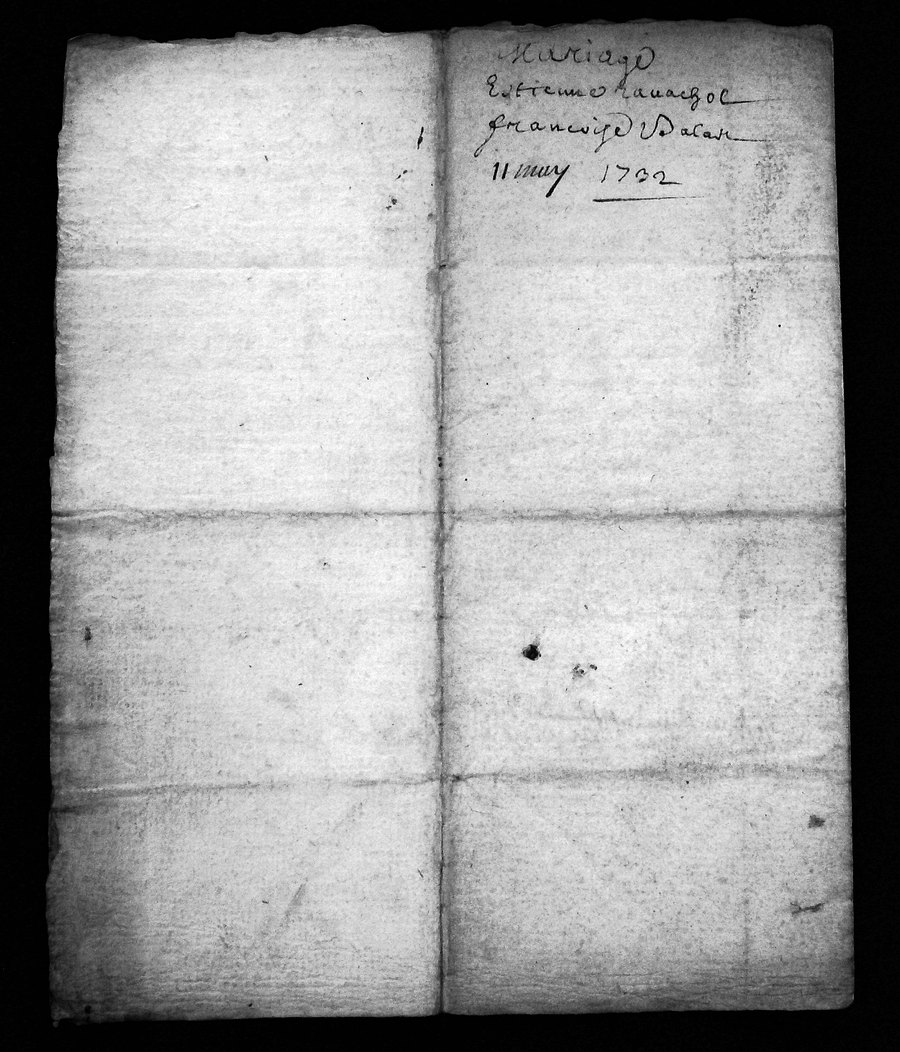 Mariage
Estienne ravachol
francoise Valar
11 may 1732